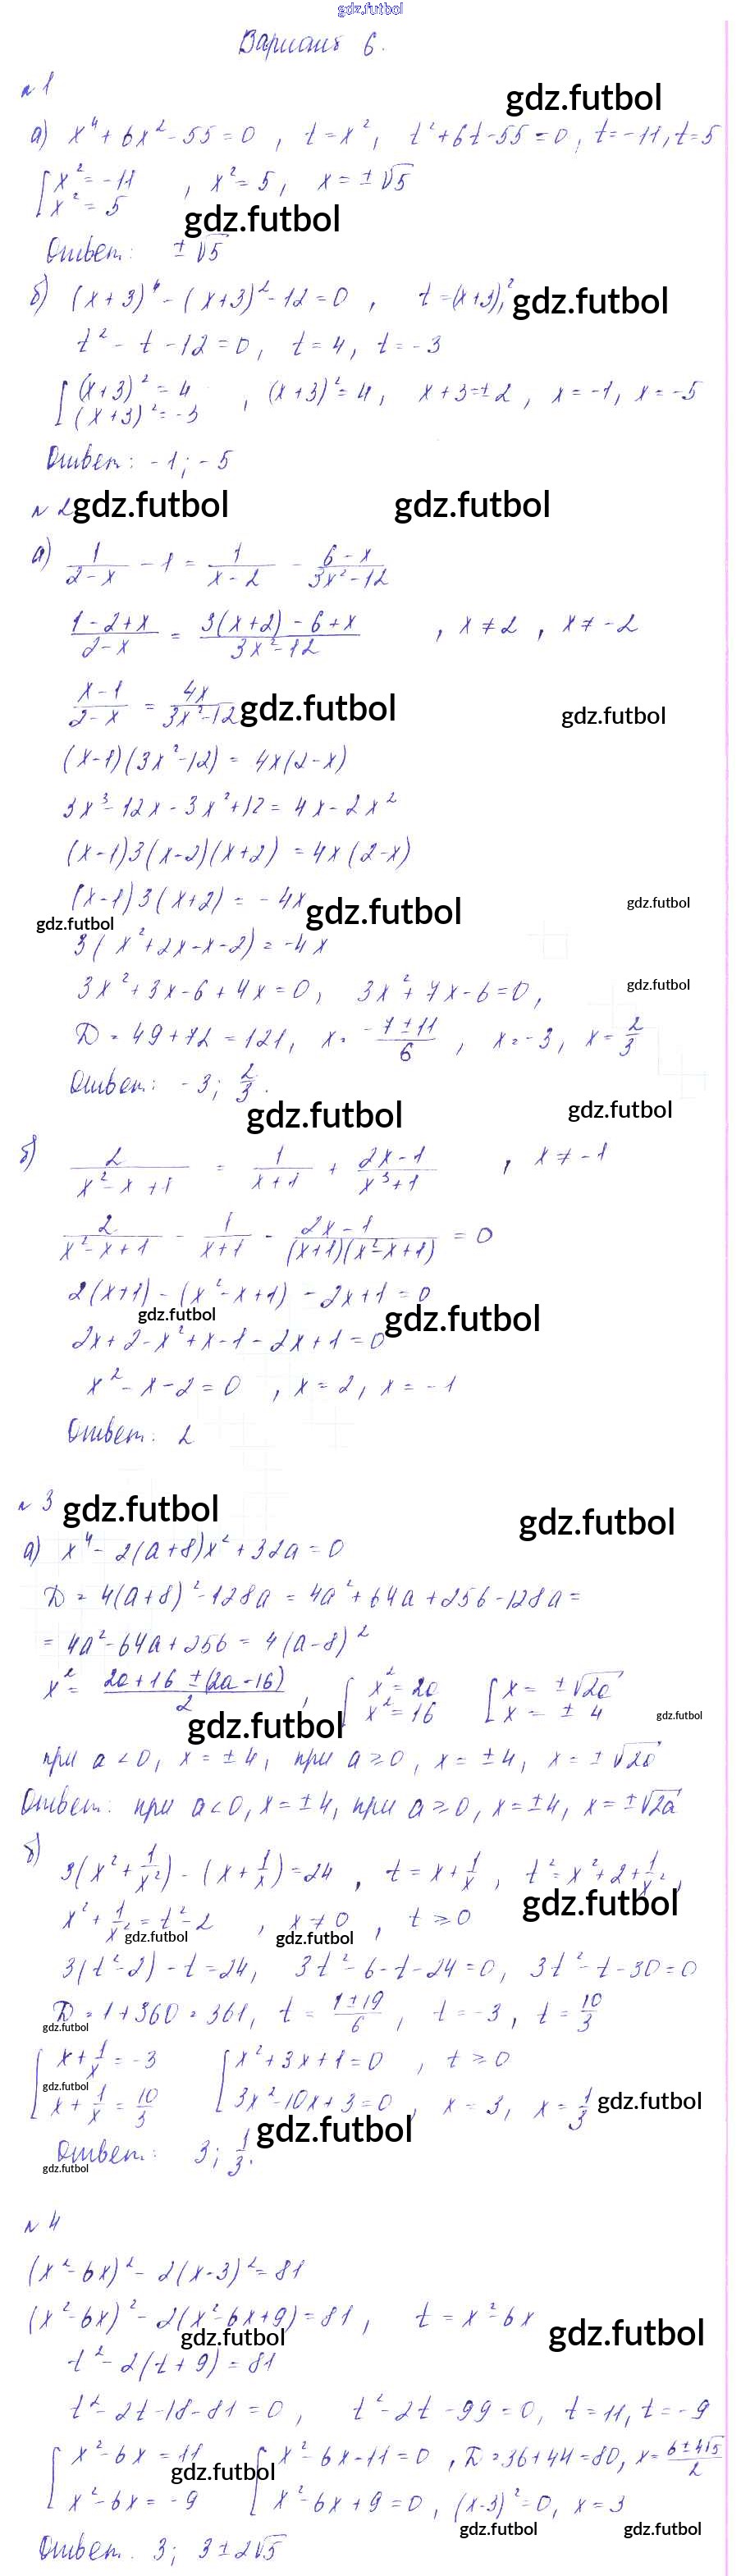 gdz.futbol
Вариант 6.
№1
gdz.futbol
а) x⁴ + 6x² - 55 = 0 , t = x² , t² + 6t - 55 = 0 , t = -11 , t = 5
[ x² = -11
x² = 5 , x² = 5 , x = ± √5
gdz.futbol
Ответ: ± √5
б) (x + 3)⁴ - (x + 3)² - 12 = 0 , t = (x+3)² , gdz.futbol
t² - t - 12 = 0 , t = 4 , t = -3
[ (x+3)² = 4
(x+3)² = -3 , (x+3)² = 4 , x + 3 = ± 2 , x = -1 , x = -5
Ответ: -1 ; -5
№2 gdz.futbol gdz.futbol
а) 1/(2-x) - 1 = 1/(x-2) - (6-x)/(3x²-12)
(1-2+x)/(2-x) = (3(x+2) - 6 + x)/(3x²-12) , x ≠ 2 , x ≠ -2
(x-1)/(2-x) = 4x/(3x²-12) gdz.futbol gdz.futbol
(x-1)(3x²-12) = 4x(2-x)
3x³ - 12x - 3x² + 12 = 4x - 2x²
(x-1)3(x-2)(x+2) = 4x(2-x)
(x-1)3(x+2) = -4x gdz.futbol gdz.futbol
gdz.futbol
3(x² + 2x - x - 2) = -4x
3x² + 3x - 6 + 4x = 0 , 3x² + 7x - 6 = 0 , gdz.futbol
D = 49 + 72 = 121 , x = (-7 ± 11)/6 , x = -3 , x = 2/3
Ответ: -3 ; 2/3 .
gdz.futbol gdz.futbol
б) 2/(x²-x+1) = 1/(x+1) + (2x-1)/(x³+1) , x ≠ -1
2/(x²-x+1) - 1/(x+1) - (2x-1)/((x+1)(x²-x+1)) = 0
2(x+1) - (x²-x+1) - 2x + 1 = 0
gdz.futbol gdz.futbol
2x + 2 - x² + x - 1 - 2x + 1 = 0
x² - x - 2 = 0 , x = 2 , x = -1
Ответ: 2
№3 gdz.futbol gdz.futbol
а) x⁴ - 2(a+8)x² + 32a = 0
D = 4(a+8)² - 128a = 4a² + 64a + 256 - 128a =
= 4a² - 64a + 256 = 4(a-8)²
x² = (2a+16 ± (2a-16))/2 , [ x² = 2a
x² = 16 [ x = ± √2a
x = ± 4
gdz.futbol gdz.futbol
при a < 0 , x = ± 4 , при a ≥ 0 , x = ± 4 , x = ± √2a
Ответ: при a < 0 , x = ± 4 , при a ≥ 0 , x = ± 4 , x = ± √2a
б) 3(x² + 1/x²) - (x + 1/x) = 24 , t = x + 1/x , t² = x² + 2 + 1/x² ,
gdz.futbol
x² + 1/x² = t² - 2 , x ≠ 0 , t ≥ 0
gdz.futbol gdz.futbol
3(t²-2) - t = 24 , 3t² - 6 - t - 24 = 0 , 3t² - t - 30 = 0
D = 1 + 360 = 361 , t = (1 ± 19)/6 , t = -3 , t = 10/3
gdz.futbol
[ x + 1/x = -3
x + 1/x = 10/3 [ x² + 3x + 1 = 0 , t ≥ 0
3x² - 10x + 3 = 0 , x = 3 , x = 1/3 gdz.futbol
gdz.futbol
gdz.futbol
Ответ: 3 ; 1/3 .
gdz.futbol
№4
(x²-6x)² - 2(x-3)² = 81
(x²-6x)² - 2(x²-6x+9) = 81 , t = x² - 6x
gdz.futbol gdz.futbol
t² - 2(t+9) = 81
t² - 2t - 18 - 81 = 0 , t² - 2t - 99 = 0 , t = 11 , t = -9
[ x² - 6x = 11
x² - 6x = -9 [ x² - 6x - 11 = 0 , D = 36 + 44 = 80 , x = (6 ± 4√5)/2
x² - 6x + 9 = 0 , (x-3)² = 0 , x = 3
gdz.futbol
gdz.futbol gdz.futbol
Ответ. 3 ; 3 ± 2√5